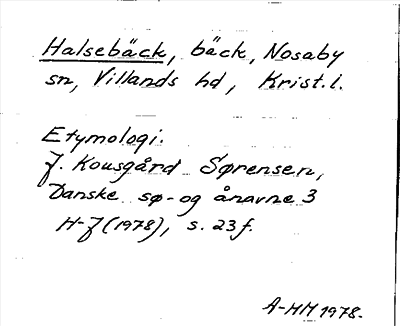 Halsebäck, bäck, Nosaby
sn, Villands hd, Krist.l.
Etymologi.
J. Kousgård Sørensen,
Danske sø- og ånavne 3
H-J (1978), s. 23f.
A-HM 1978.